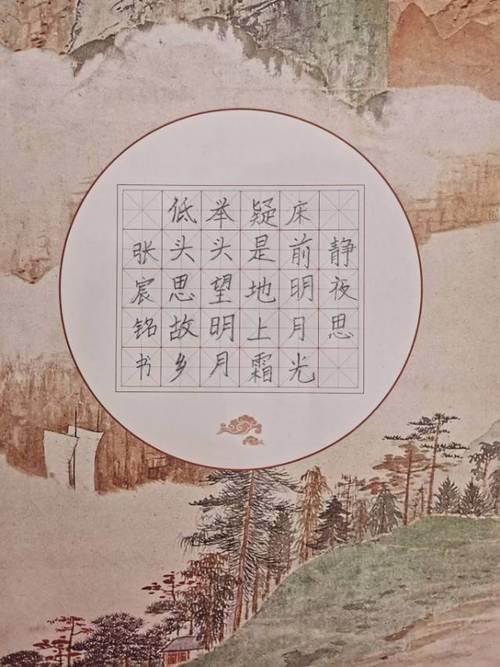 静夜思
床前明月光
疑是地上霜
举头望明月
低头思故乡
张宸铭书